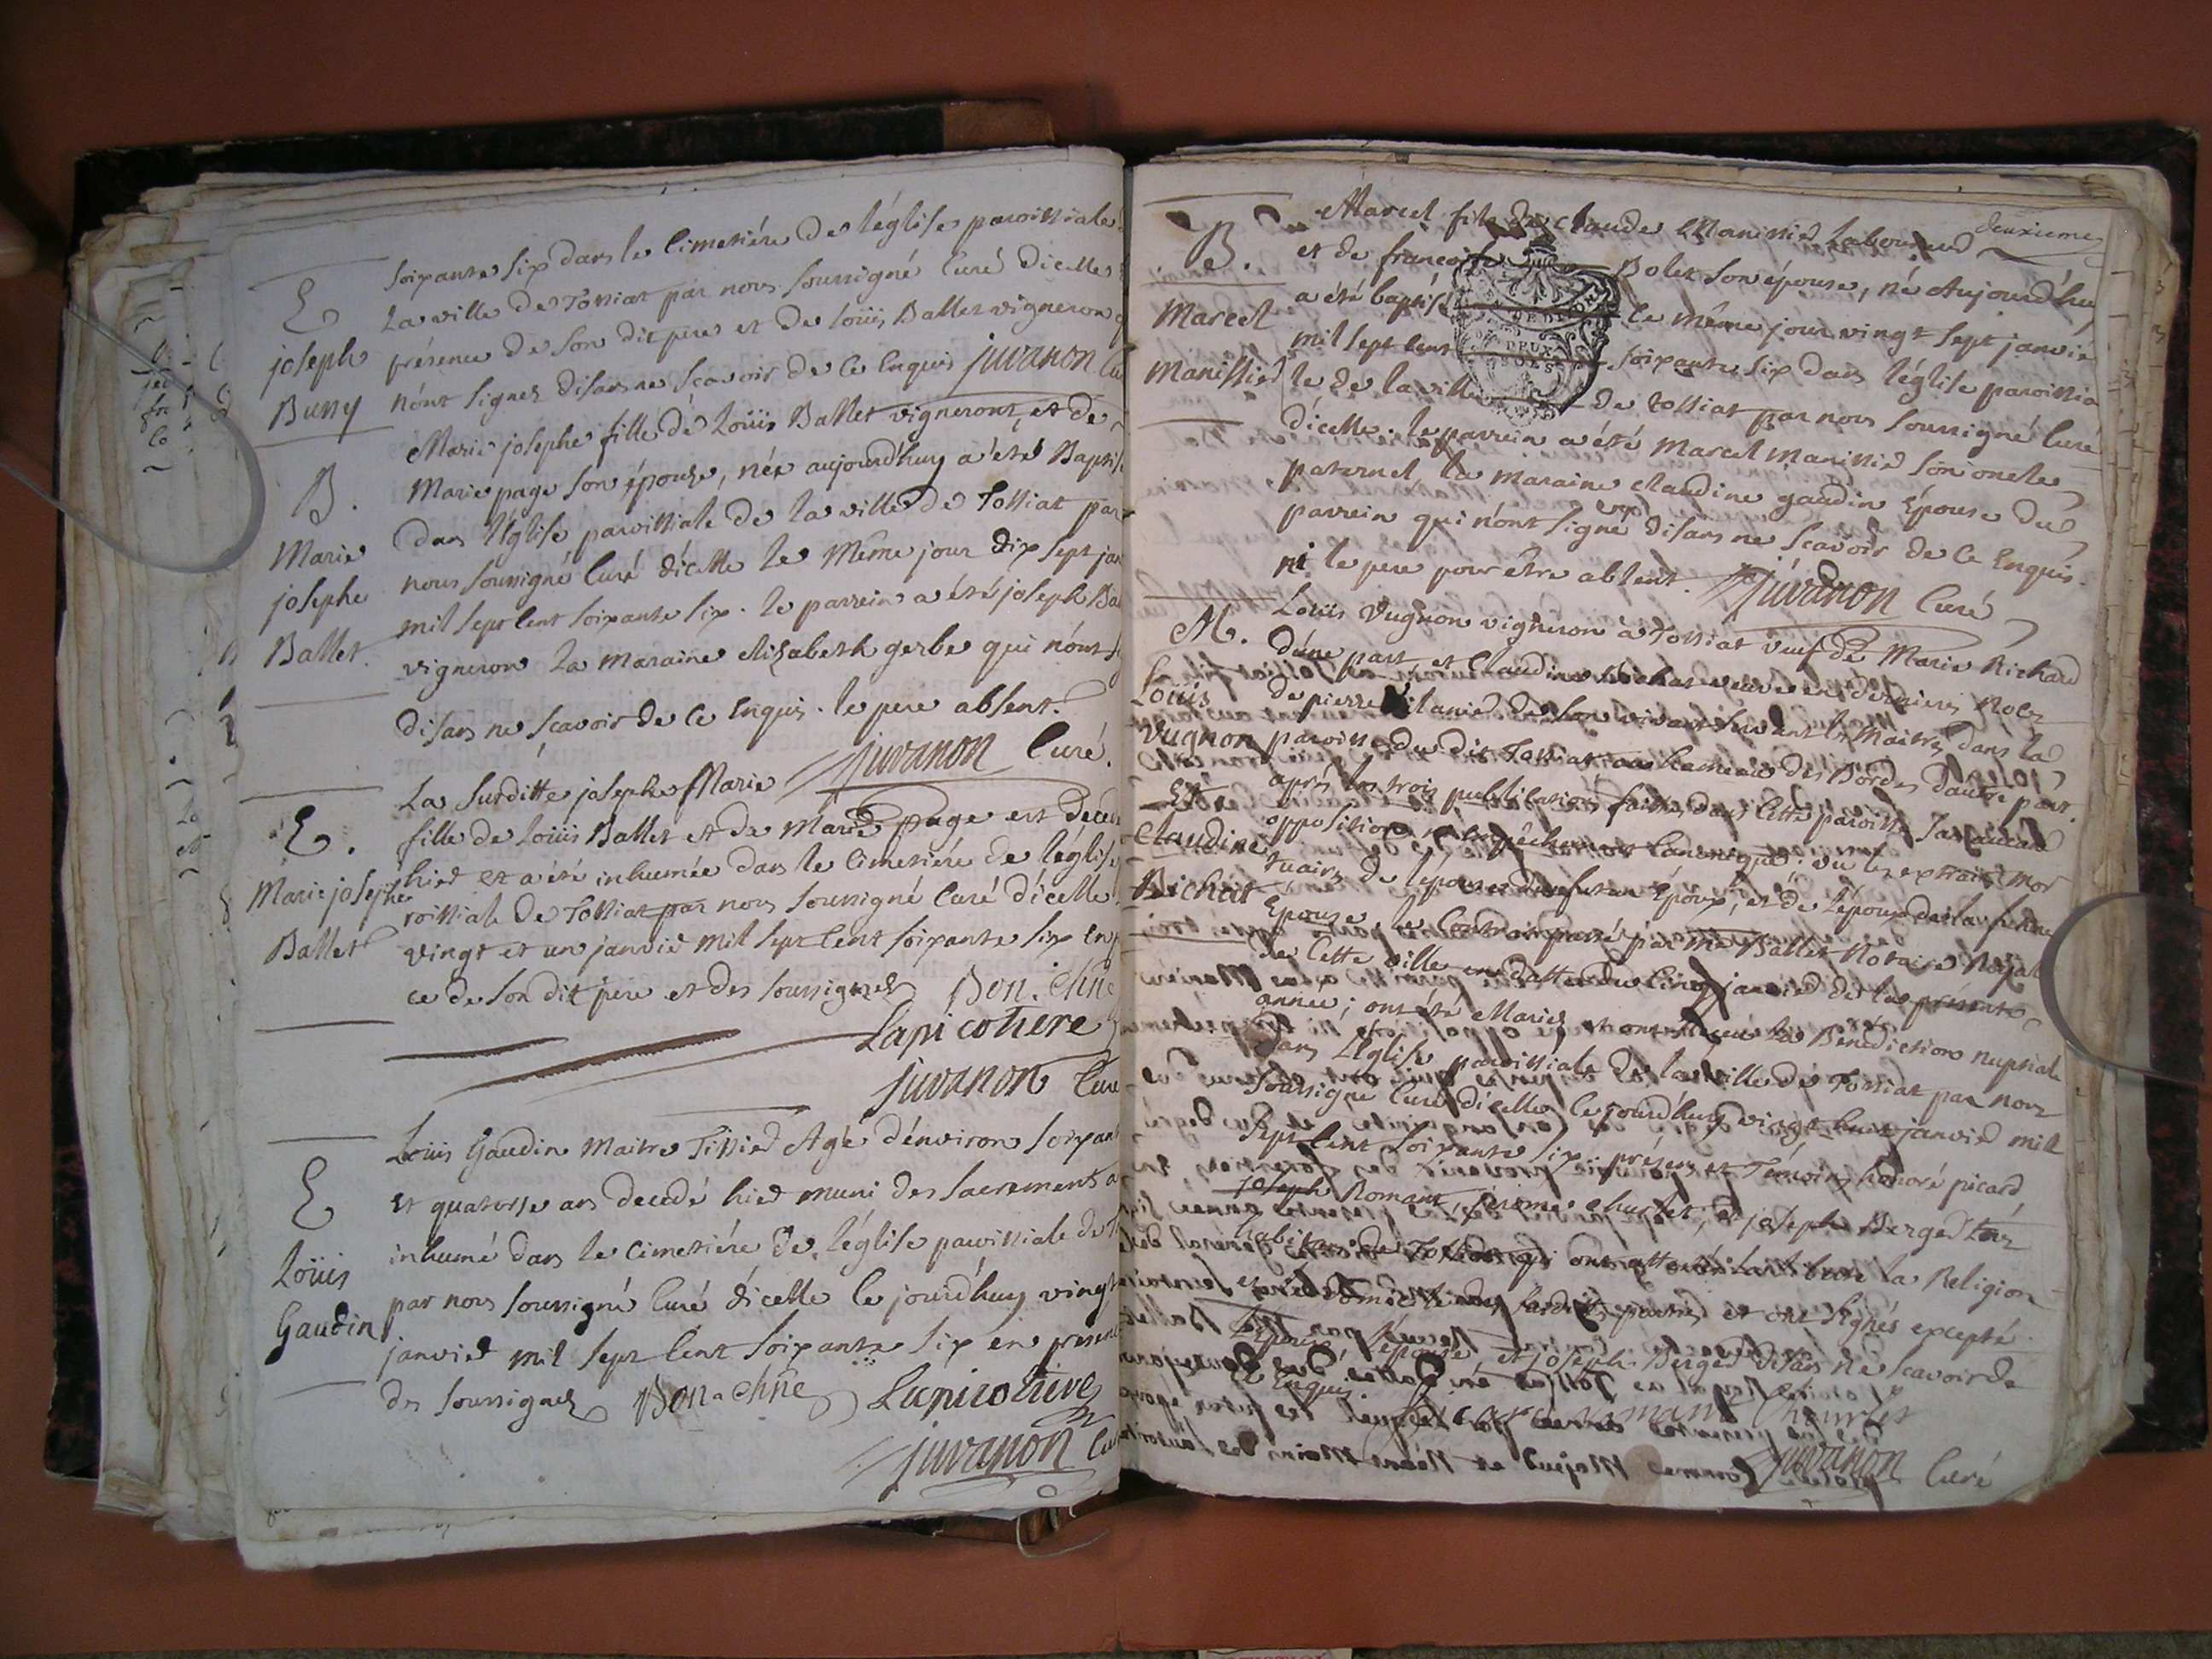 E
joseph
Buny
soixante six dans le Cimetiére de léglise paroissiale
La ville de Tossiat par nous soussigné Curé dicelle
présence de son dit pere et de Loüis Ballet vigneron
nónt signés disans ne scavoir de ce Enquis juvanon Cu
B.
Marie
josephe
Ballet.
Marie josephe fille de Loüis Ballet vigneront, et de
Marie page son épouse, née aujourdhuy a été Baptisé
dans l'église paroissiale de la ville de Tossiat par
nous soussigné Curé dicelle le Même jour dix sept jan
mil sept Cent soixante six. le parrein a été joseph Ba
vigneron la maraine elizabeth gerbe qui nónt
disans ne scavoir de ce Enquis. le pere absent.
juvanon Curé.
E.
Marie josephe
Ballet
La surditte josephe Marie
fille de Loüis Ballet et de Marie page est decedé
hier et a été inhumée dans le Cimetiére de l'église
roissiale de Tossiat par nous soussigné Curé dicelle
vingt et un janvier mil sept Cent soixante six en p
ce de son dit pere et des soussignés Bon. Chne
Lapicotiere
juvanon Cure
E
Loüis
Gaudin
Loüis Gaudin Maitre Tissier Agé dénviron soixant
et quatorse ans decedé hier muni des sacrements a
inhumé dans le Cimetiére de léglise paroissiale de
par nous soussigné Curé dicelle le jourdhuy vingt
janvier mil sept Cent soixante six en presenc
des soussignés Bon. Chne Lapicotiere
juvanon Cu
deuxieme
B.
Marcel
Manissier
Marcel fils de Claude Manissier Laboureur
et de francoise Bolet son épouse, né Aujourdhuy
a été baptisé le même jour vingt sept janvier
mil sept Cent soixante six dans léglise paroissia
le de la ville de tossiat par nous soussigné Curé
dicelle. le parrein a été Marcel manissier son oncle
paternel, la maraine claudine gaudin épouse du
parrein qui nónt signé disans ne scavoir de Ce Enquis.
ni le pere pour être absent. juvanon Curé
M.
Loüis
Vugnon
Et
Claudine
Bichat
Loüis Vugnon vigneron à Tossiat veuf de Marie Richard
dúne part et Claudine Bichat veuve en dernieres Noces
de pierre de son vivant servant les Maitres dans la
paroisse du dit Tossiat au hameau des Bordes dautre part.
après les trois publications faittes dans Cette paroisse sans aucune
opposition ni empêchement Canonique. vu les extraits mor
tuaires de lepouse du futur époux, et de lépoux de la future
Epouse, le Contrat passé par me Ballet Notaire Royal
de Cette ville en datte du Cinq janvier de la présente
année; ont été Mariés et ont Receu la Bénédiction nuptiale
dans l'Eglise paroissiale de la ville de Tossiat par nous
soussigné Curé dicelle Ce jourdhuy vingt huit janvier mil
sept Cent soixante six présens et Témoins honoré picard
joseph Romant, jérome Churlet, et joseph Berger tous
habitans de Tossiat qui ont attesté la liberté la Religion
et domicile des susdittes parties et ont signés excepté
l'époux l'épouse, et joseph Berger disans ne scavoir de
Ce Enquis. Picard romant Churlet
juvanon Curé